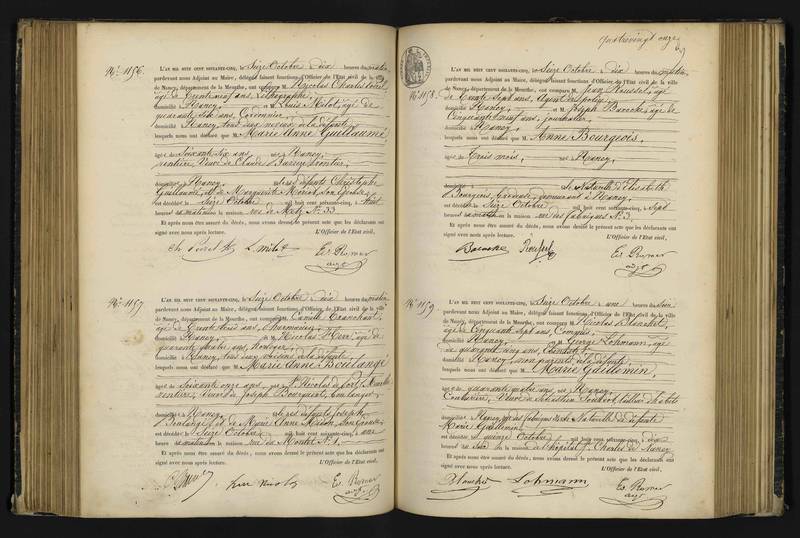 N° 1156.
L'AN MIL HUIT CENT SOIXANTE-CINQ, le Seize Octobre Dix heures du matin
pardevant nous Adjoint au Maire, délégué faisant fonctions d'Officier de l'Etat civil de la ville
de Nancy, département de la Meurthe, ont comparu M. Nicolas Charles
âgé de ans, Lithographe,
domicilié à Nancy, et M. Louis Milot, âgé de
quarante six ans, Cordonnier,
domicilié à Nancy, tous deux neveux de la défunte,
lesquels nous ont déclaré que M. Marie Anne Guillaume
âgée de Soixante six ans, née à Nancy,
rentière, Veuve de Claude
domiciliée à Nancy, des défunts Christophe
Guillaume, et de Marguerite son épouse,
est décédée le Seize Octobre mil huit cent soixante-cinq, à huit
heures du matin en la maison rue de Metz N° 33
Et après nous être assuré du décès, nous avons dressé le présent acte que les déclarants ont
signé avec nous après lecture. L'Officier de l'Etat civil,
L. Milot
N° 1157
L'AN MIL HUIT CENT SOIXANTE-CINQ, le Seize Octobre Dix heures du matin
pardevant nous Adjoint au Maire, délégué faisant fonctions d'Officier de l'Etat civil de la ville
de Nancy, département de la Meurthe, ont comparu M. Camille
âgé de trois ans, Pharmacien,
domicilié à Nancy, et M. Nicolas âgé de
quarante quatre ans, Horloger,
domicilié à Nancy, tous deux voisins de la défunte,
lesquels nous ont déclaré que M. Marie Anne Boulangé
âgée de Soixante onze ans, née à St. Nicolas de Port, Meurthe
rentière, Veuve de Joseph Bourguent, boulanger
domiciliée à Nancy, des défunts Joseph
Boulangé et de Marie Anne son épouse,
est décédée le Seize Octobre mil huit cent soixante-cinq, à une
heure du matin en la maison rue de Montet N° 1.
Et après nous être assuré du décès, nous avons dressé le présent acte que les déclarants ont
signé avec nous après lecture. L'Officier de l'Etat civil,
quatrevingt onze
N° 1158.
L'AN MIL HUIT CENT SOIXANTE-CINQ, le Seize Octobre Dix heures du matin,
pardevant nous Adjoint au Maire, délégué faisant fonctions d'Officier de l'Etat civil de la ville
de Nancy, département de la Meurthe, ont comparu M. Jean Roussel, âgé
de Trente Sept ans, Agent de police,
domicilié à Nancy, et M. Joseph Baroche, âgé de
Cinquante neuf ans, journalier,
domicilié à Nancy,
lesquels nous ont déclaré que M. Anne Bourgeois,
âgée de Trois mois, née à Nancy,
domiciliée à fille Naturelle d'Elisabeth
Bourgeois, demeurant à Nancy,
est décédée le Seize Octobre mil huit cent soixante-cinq, à Sept
heures du matin en la maison rue des fabriques N° 3.
Et après nous être assuré du décès, nous avons dressé le présent acte que les déclarants ont
signé avec nous après lecture. L'Officier de l'Etat civil,
Baroche
N° 1159
L'AN MIL HUIT CENT SOIXANTE-CINQ, le Seize Octobre une heures du soir
pardevant nous Adjoint au Maire, délégué faisant fonctions d'Officier de l'Etat civil de la ville
de Nancy, département de la Meurthe, ont comparu M. Nicolas Blanchet,
âgé de Cinquante Sept ans, Commis,
domicilié à Nancy, et M. George Lohmann, âgé
de quarante cinq ans,
domicilié à Nancy, non parents de la défunte,
lesquels nous ont déclaré que M. Marie Guillemin,
âgée de quarante quatre ans, née à Nancy,
Couturière, Veuve de Sébastien
domiciliée à Nancy, rue des fabriques fille Naturelle de défunte
Marie Guillemin
est décédée le quinze Octobre mil huit cent soixante-cinq, à onze
heures du soir en la maison de l'hôpital St. Charles de Nancy
Et après nous être assuré du décès, nous avons dressé le présent acte que les déclarants ont
signé avec nous après lecture. L'Officier de l'Etat civil,
Blanchet Lohmann